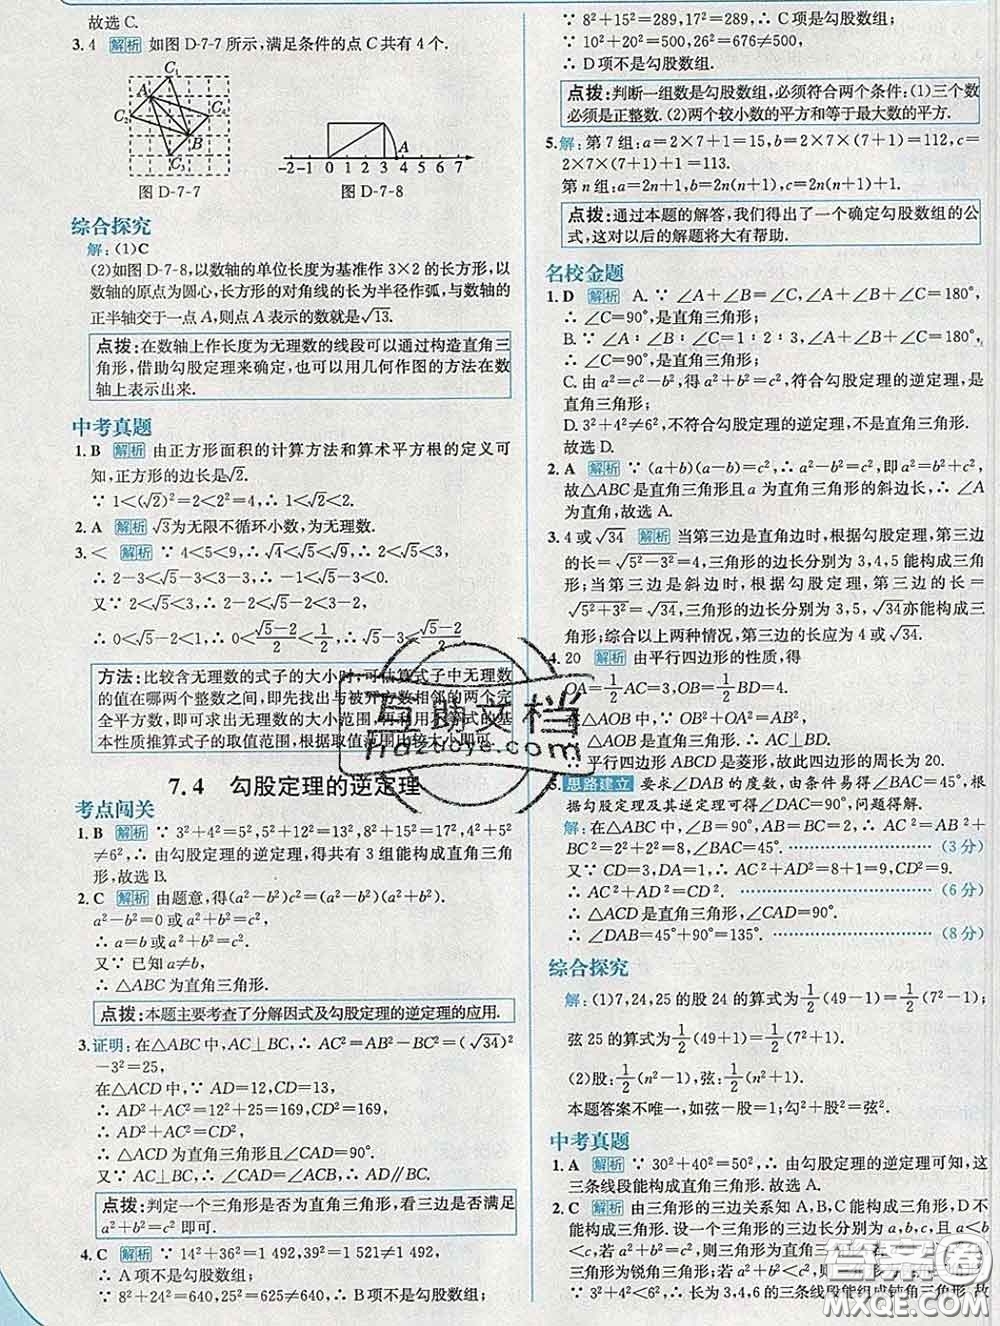 故选 C.
3. 4 解析 如图 D-7-7 所示,满足条件的点 C 共有 4 个.
C₁
A
C₂
C₄
B
C₃
图 D-7-7
A
-2 -1 0 1 2 3 4 5 6 7
图 D-7-8
综合探究
解:(1)C
(2)如图 D-7-8,以数轴的单位长度为基准作 3×2 的长方形,以
数轴的原点为圆心,长方形的对角线的长为半径作弧,与数轴的
正半轴交于一点 A,则点 A 表示的数就是√13.
点拨:在数轴上作长度为无理数的线段可以通过构造直角三
角形,借助勾股定理来确定,也可以用几何作图的方法在数
轴上表示出来.
中考真题
1. B 解析 由正方形面积的计算方法和算术平方根的定义可
知,正方形的边长是√2.
∵ 1<(√2)²=2<2²=4,∴ 1<√2<2.
2. A 解析 √3为无限不循环小数,为无理数.
3. < 解析 ∵ 4<5<9,∴ √4<√5<√9,∴ 2<√5<3,
∴ 2-3<√5-3<3-3,∴ -1<√5-3<0.
又∵ 2<√5<3,∴ 2-2<√5-2<3-2,
∴ 0<√5-2<1,∴ 0<(√5-2)/2<1/2,∴ √5-3<(√5-2)/2.
方法:比较含无理数的式子的大小时,可估算式子中无理数
的值在哪两个整数之间,即先找出与被开方数相邻的两个完
全平方数,即可求出无理数的大小范围,再利用不等式的基
本性质推算式子的取值范围,根据取值范围比较大小即可.
7.4 勾股定理的逆定理
考点闯关
1. B 解析 ∵ 3²+4²=5²,5²+12²=13²,8²+15²=17²,4²+5²
≠6²,∴ 由勾股定理的逆定理,得共有 3 组能构成直角三角
形,故选 B.
2. C 解析 由题意,得(a²-b²)c²=(a²-b²)(a²+b²).
a²-b²=0 或 a²+b²=c²,
∴ a=b 或 a²+b²=c².
又∵ 已知 a≠b,
∴ △ABC 为直角三角形.
点拨:本题主要考查了分解因式及勾股定理的逆定理的应用.
3. 证明:在△ABC 中,AC⊥BC,∴ AC²=AB²-BC²=(√34)²
-3²=25,
在△ACD 中,∵ AD=12,CD=13,
∴ AD²+AC²=12²+25=169,CD²=169,
∴ AD²+AC²=CD²,
∴ △ACD 为直角三角形且∠CAD=90°.
又∵ AC⊥BC,∴ ∠CAD=∠ACB,∴ AD∥BC.
点拨:判定一个三角形是否为直角三角形,看三边是否满足
a²+b²=c² 即可.
4. C 解析 ∵ 14²+36²=1 492,39²=1 521≠1 492,
∴ A 项不是勾股数组;
∵ 8²+24²=640,25²=625≠640,∴ B 项不是勾股数组;
∵ 8²+15²=289,17²=289,∴ C 项是勾股数组;
∵ 10²+20²=500,26²=676≠500,
∴ D 项不是勾股数组.
点拨:判断一组数是勾股数组,必须符合两个条件:(1)三个数
必须是正整数.(2)两个较小数的平方和等于最大数的平方.
5. 解:第 7 组:a=2×7+1=15,b=2×7×(7+1)=112,c=
2×7×(7+1)+1=113.
第 n 组:a=2n+1,b=2n(n+1),c=2n(n+1)+1.
点拨:通过本题的解答,我们得出了一个确定勾股数组的公
式,这对以后的解题将大有帮助.
名校金题
1. D 解析 A. ∵ ∠A+∠B=∠C,∠A+∠B+∠C=180°,
∴ ∠C=90°,是直角三角形;
B. ∵ ∠A∶∠B∶∠C=1∶2∶3,∠A+∠B+∠C=180°,
∴ ∠C=90°,是直角三角形;
C. 由 a²=c²-b²,得 a²+b²=c²,符合勾股定理的逆定理,是
直角三角形;
D. 3²+4²≠6²,不符合勾股定理的逆定理,不是直角三角形.
故选 D.
2. A 解析 ∵ (a+b)(a-b)=c²,∴ a²-b²=c²,即 a²=b²+c²,
故△ABC 是直角三角形且 a 为直角三角形的斜边长,∴ ∠A
为直角,故选 A.
3. 4 或√34 解析 当第三边是直角边时,根据勾股定理,第三边
的长=√(5²-3²)=4,三角形的边长分别为 3,4,5 能构成三角
形;当第三边是斜边时,根据勾股定理,第三边的长=
√(5²+3²)=√34,三角形的边长分别为 3,5,√34亦能构成三角
形;综合以上两种情况,第三边的长应为 4 或√34.
4. 20 解析 由平行四边形的性质,得
OA=1/2AC=3,OB=1/2BD=4.
在△AOB 中,∵ OB²+OA²=AB²,
∴ △AOB 是直角三角形,∴ AC⊥BD,
∴ 平行四边形 ABCD 是菱形,故此四边形的周长为 20.
5. 思路建立 要求∠DAB 的度数,由条件易得∠BAC=45°,根据
勾股定理及其逆定理可得∠DAC=90°,问题得解.
解:在△ABC 中,∠B=90°,AB=BC=2,∴ AC²=AB²+
BC²=2²+2²=8,∠BAC=45°. (3 分)
又∵ CD=3,DA=1,∴ AC²+AD²=8+1=9,CD²=9.
∴ AC²+AD²=CD². (6 分)
∴ △ACD 是直角三角形,∠CAD=90°.
∴ ∠DAB=45°+90°=135°. (8 分)
综合探究
解:(1)7,24,25 的股 24 的算式为1/2(49-1)=1/2(7²-1);
弦 25 的算式为1/2(49+1)=1/2(7²+1).
(2)股:1/2(n²-1),弦:1/2(n²+1).
本题答案不唯一,如弦-股=1;勾²+股²=弦².
中考真题
1. A 解析 ∵ 30²+40²=50²,∴ 由勾股定理的逆定理可知,这
三条线段能构成直角三角形.故选 A.
2. C 解析 由三角形的三边关系知 A,B,C 能构成三角形,D 不
能构成三角形.设一个三角形的三边长分别为 a,b,c,且 a<b
<c,如果 a²+b²=c²,则三角形为直角三角形;
互助文档
huzhuoye.com
答案圈
MXQE.COM